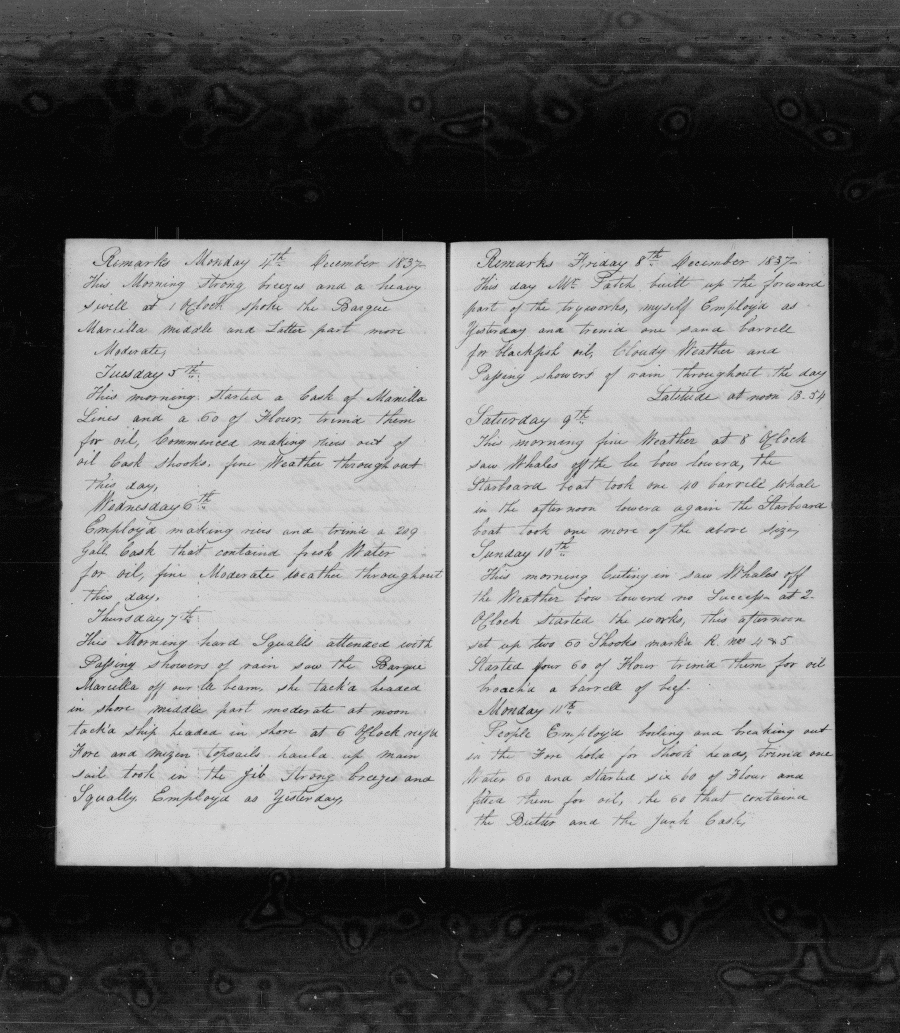 Remarks Monday 4th December 1837
This Morning Strong breezes and a heavy
swell at 1 OClock spoke the Barque
Marcella middle and Latter part more
Moderate,
Tuesday 5th
This morning started a Cask of Manilla
Lines and a 60 of Flour, trim'd them
for oil, Commenced making rivs out of
oil Cask Shooks, fine Weather throughout
this day,
Wednesday 6th
Employ'd making rivs and trim'd a 209
Gall Cask that contain'd fresh Water
for oil, fine Moderate weather throughout
this day,
Thursday 7th
This Morning hard Squalls attended with
Passing showers of rain saw the Barque
Marcella off our le beam, she tack'd headed
in shore middle part moderate at noon
tack'd ship headed in shore at 6 OClock
Fore and mizen topsails, hauld up main
sail took in the jib Strong breezes and
Squally Employ'd as Yesterday,
Remarks Friday 8th December 1837
This day Mr Patch built up the forward
part of the tryworks, myself Employ'd as
Yesterday and trim'd one sand barrell
for blackfish oil, Cloudy Weather and
Passing showers of rain throughout the day
Latitude at noon 13.54
Saturday 9th
This morning fine Weather at 8 OClock
saw Whales off the lee bow lowerd, the
Starboard boat took one 40 barrell whale
in the afternoon lowerd again the Starboard
boat took one more of the above size,
Sunday 10th
This morning cuting in saw Whales off
the Weather bow lowerd no Success at 2
OClock started the works, this afternoon
set up two 60 Shooks mark'd R no 4 & 5
Started four 60 of Flour trim'd them for oil
broach'd a barrell of beef.
Monday 11th
People Employ'd boiling and breaking out
in the Fore hold for Shook heads, trim'd one
Water 60 and started six 60 of Flour and
fited them for oil, the 60 that containd
the Butter and the Junk Cask,